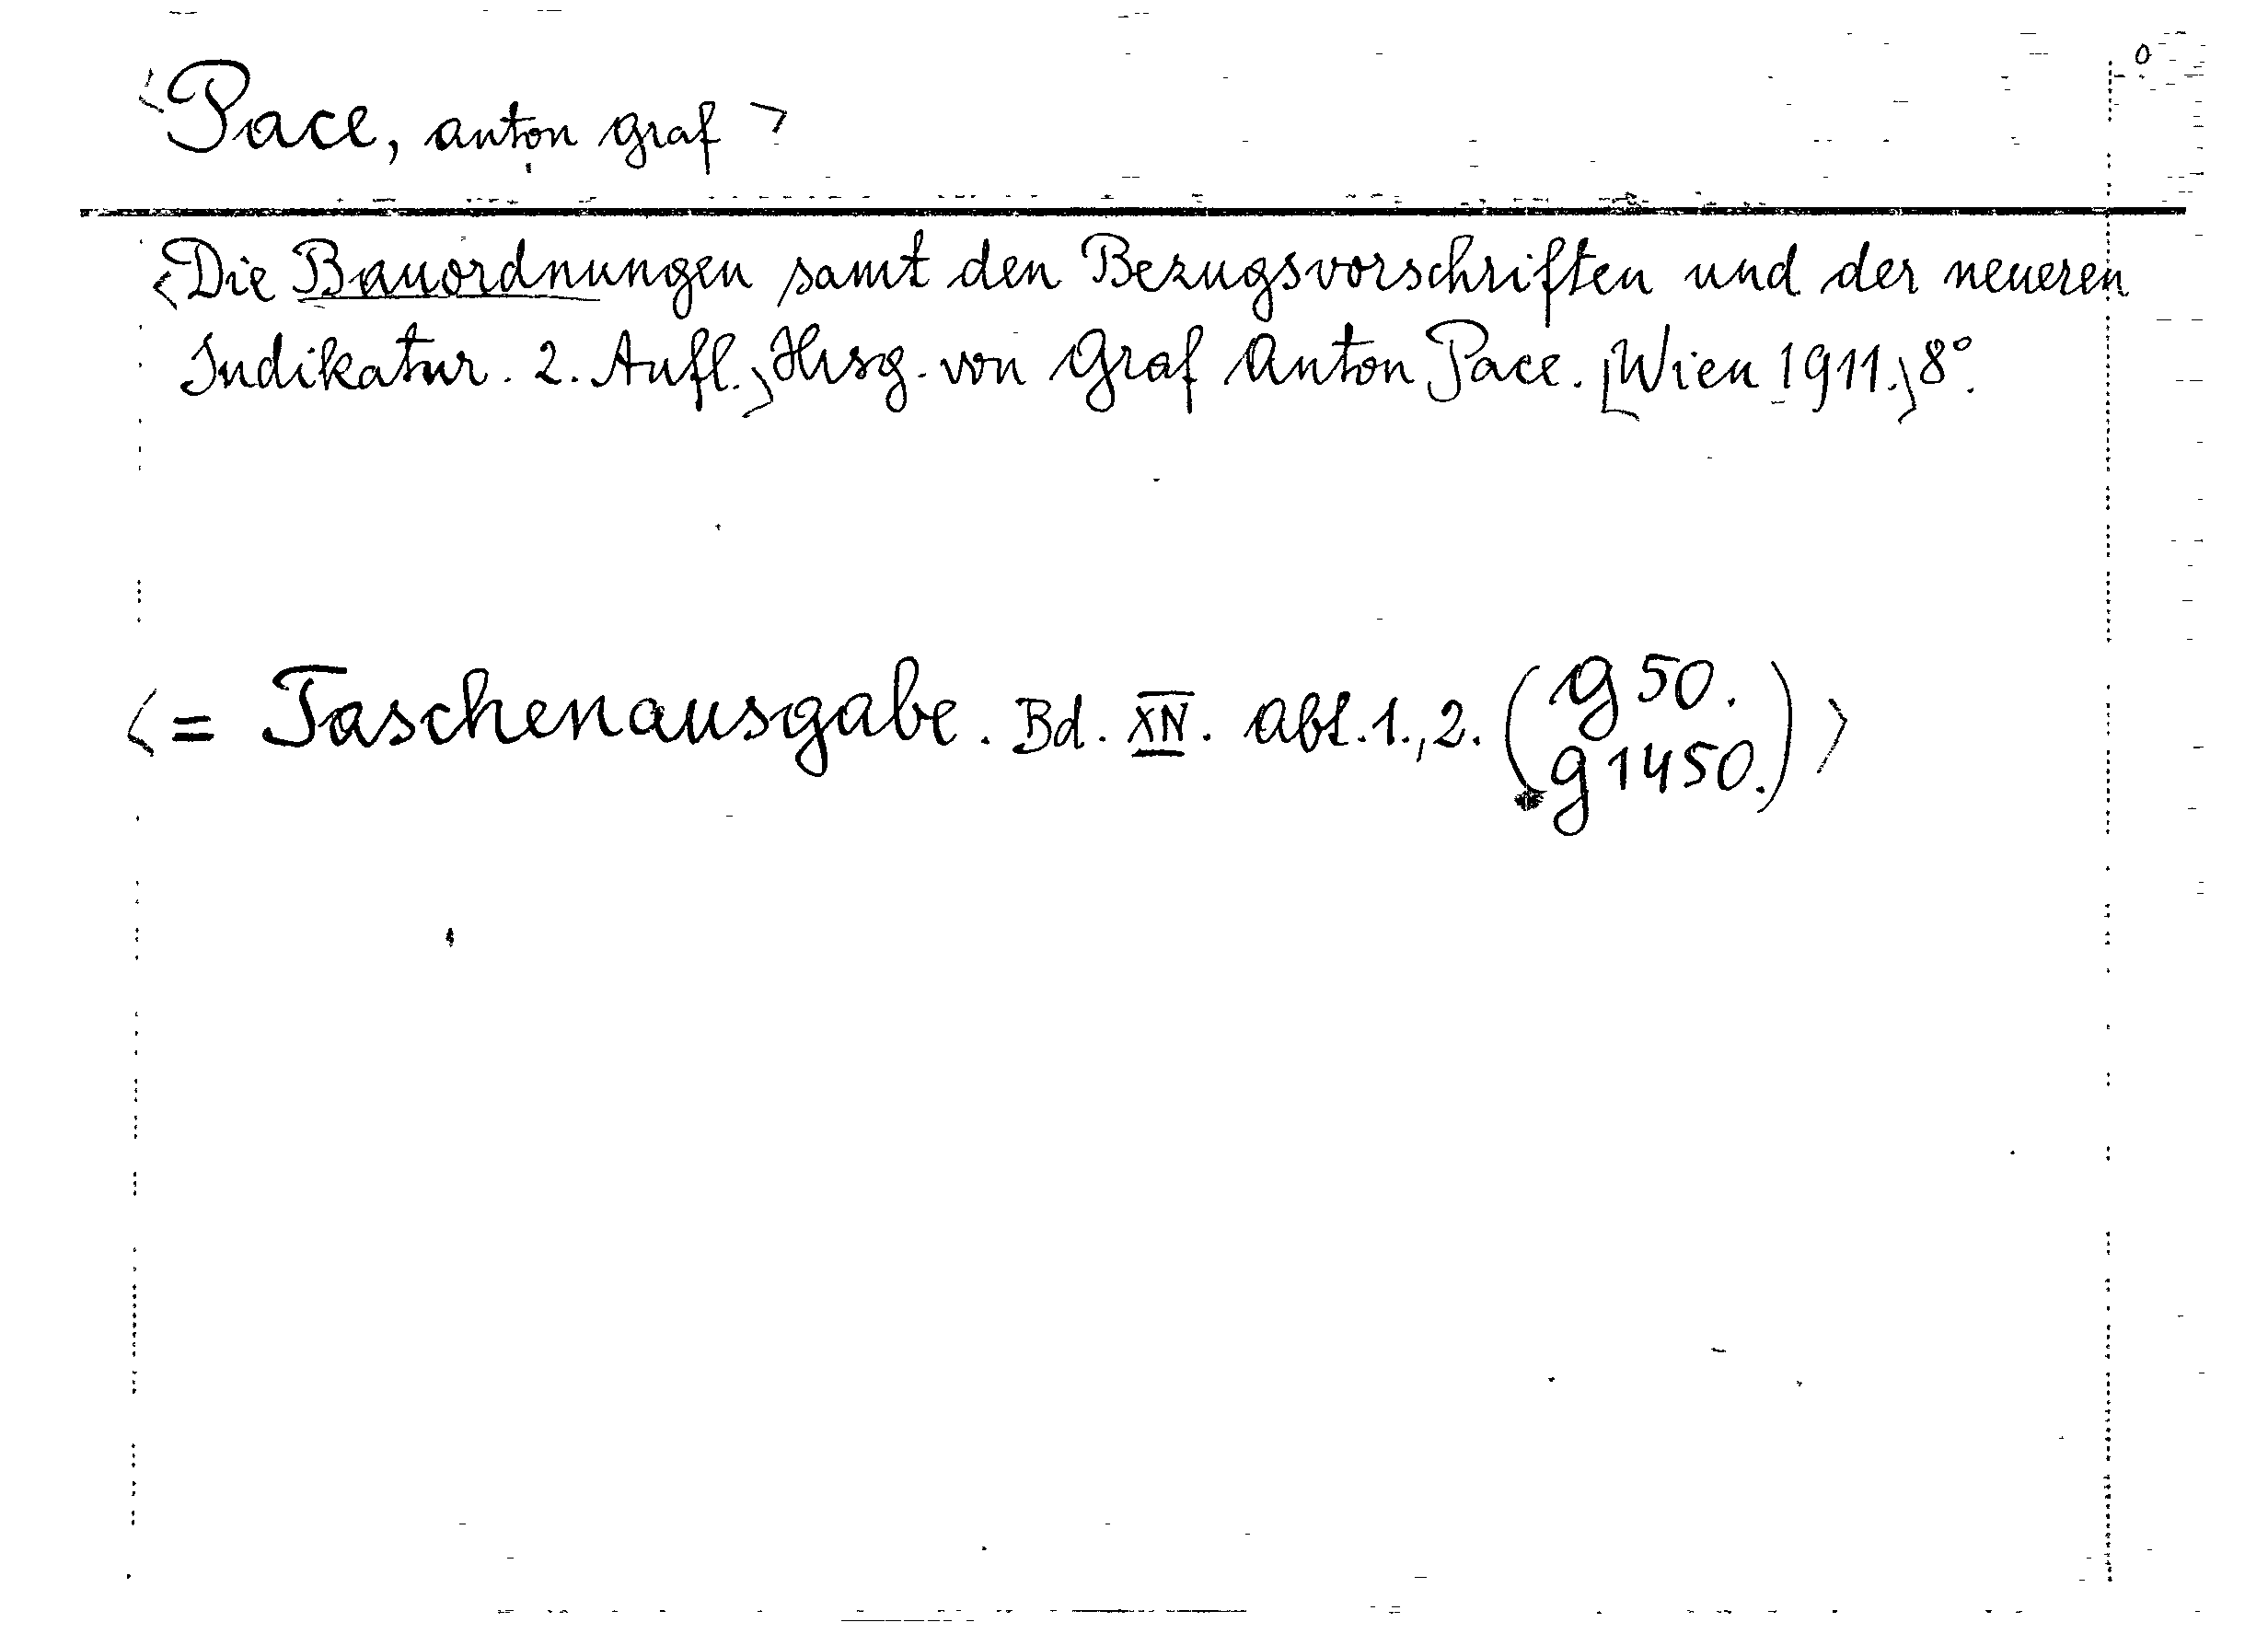 <Pace, Anton Graf>
<Die Bauordnungen samt den Bezugsvorschriften und der neueren
Indikatur. 2. Aufl.> Hrsg. von Graf Anton Pace. [Wien 1911.] 8°.
<= Taschenausgabe. Bd. XIV. Abt. 1., 2. (G 50.
G 1450.)>